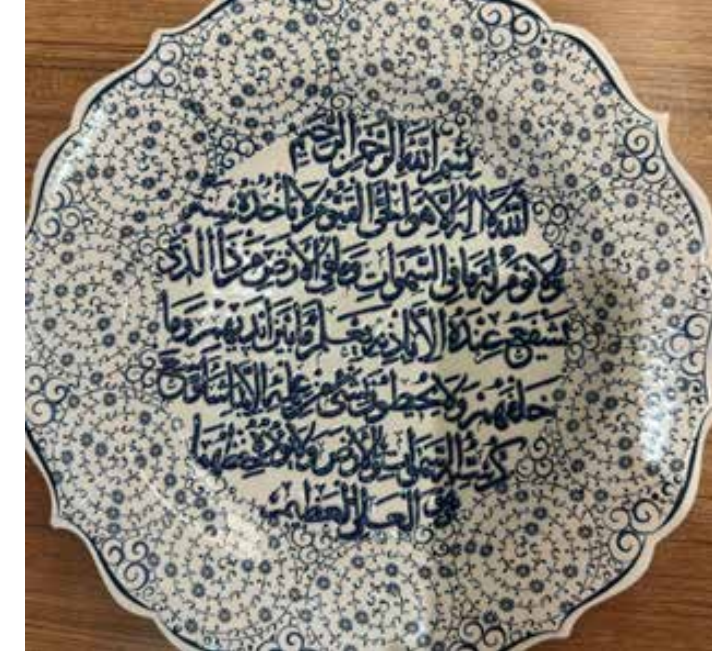 بسم الله الرحمن الرحيم
الله لا اله الا هو الحي القيوم لا تأخذه سنة
ولا نوم له ما في السموات وما في الأرض من ذا الذي
يشفع عنده الا باذنه يعلم ما بين أيديهم وما
خلفهم ولا يحيطون بشئ من علمه الا بما شاء وسع
كرسيه السموات والأرض ولا يؤده حفظهما
وهو العلي العظيم